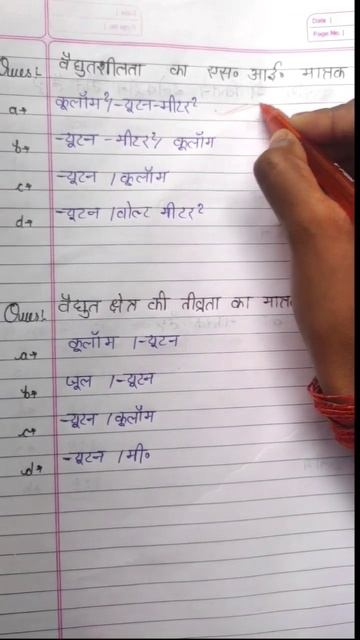 Date |
Page No. |
Ques! वैद्युतशीलता का एस० आई० मात्रक
a→ कूलॉम²/-यूटन-मीटर²
b→ -यूटन - मीटर²/ कूलॉम
c→ -यूटन / कूलॉम
d→ -यूटन /वोल्ट मीटर²
Ques! वैद्युत क्षेत्र की तीव्रता का मात
a→ कूलॉम /-यूटन
b→ जूल /-यूटन
c→ -यूटन / कूलॉम
d→ -यूटन / मी०